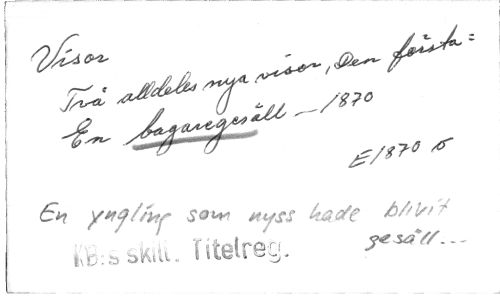 Visor
Två alldeles nya visor, Den första:
En bagaregesäll — 1870
E1870 б
En yngling som nyss hade blivit
gesäll...
KB:s skill. Titelreg.